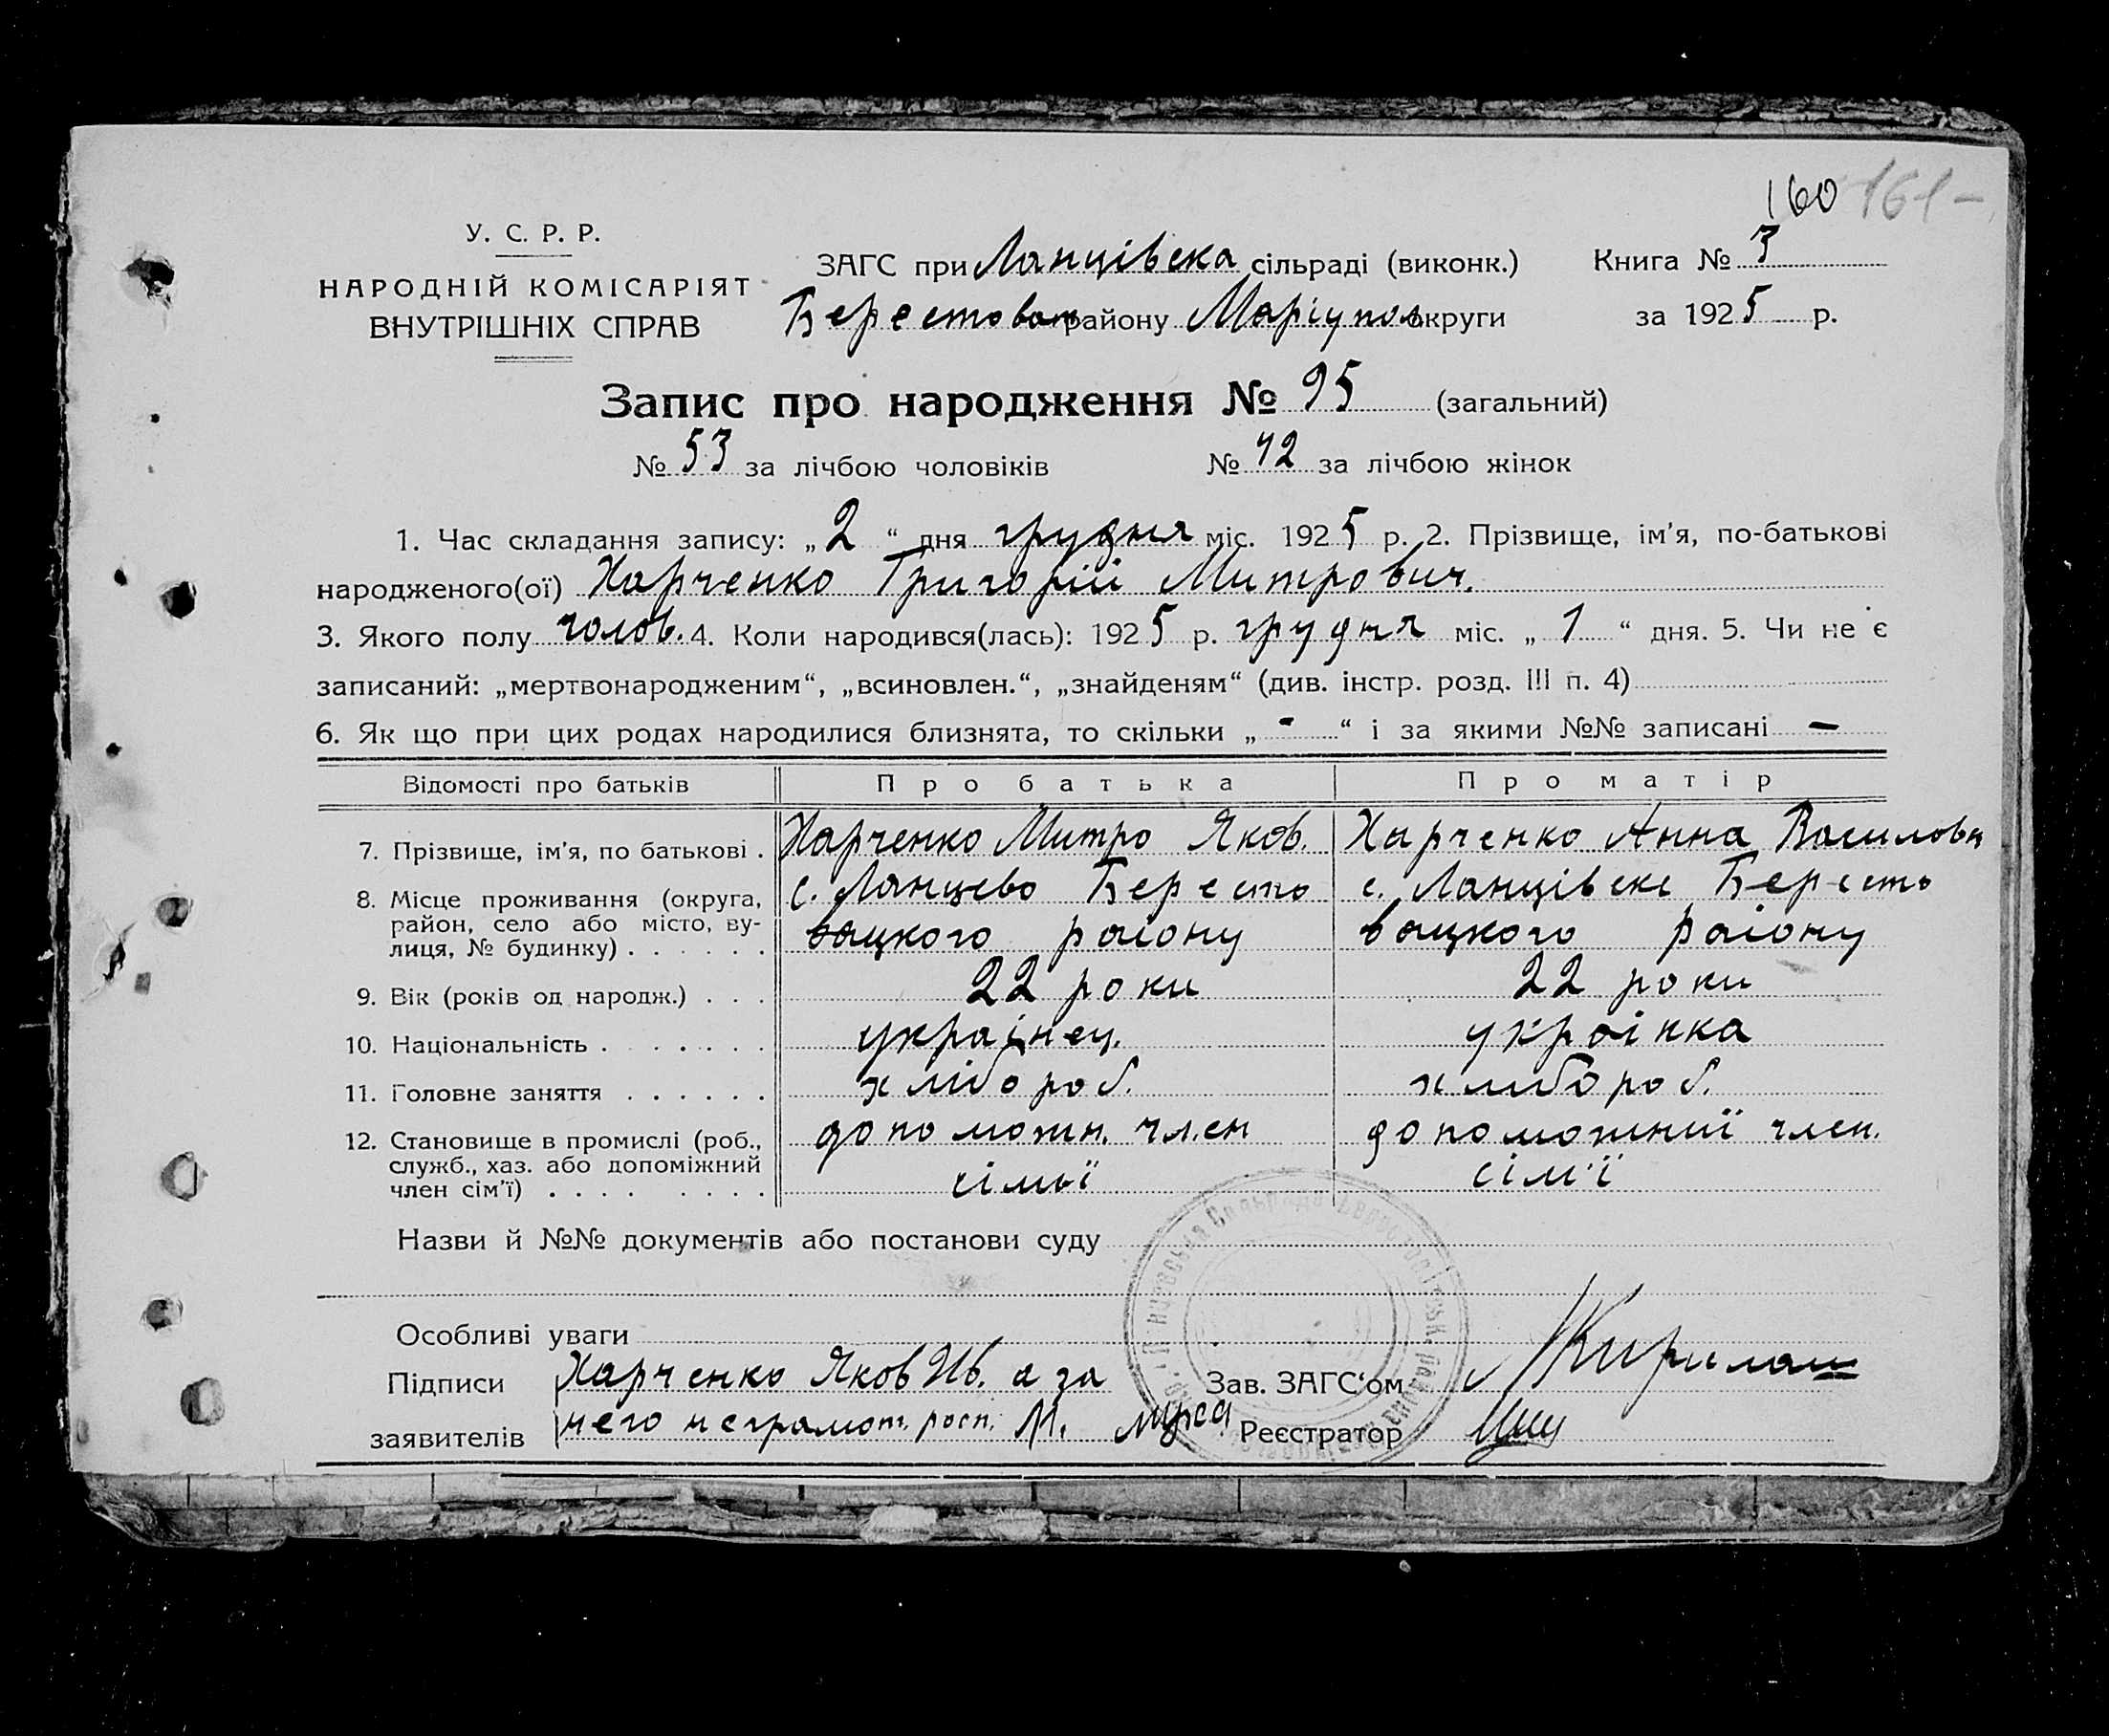 160 161-
У. С. Р. Р.
НАРОДНІЙ КОМІСАРІЯТ
ВНУТРІШНІХ СПРАВ
ЗАГС при Ланцівська сільраді (виконк.)
Берестоват району Маріупол округи
Книга № 3
за 1925 р.
Запис про народження № 95 (загальний)
№ 53 за лічбою чоловіків № 42 за лічбою жінок
1. Час складання запису: „2“ дня грудня міс. 1925 р. 2. Прізвище, ім'я, по-батькові
народженого(ої) Харченко Григорій Митрович.
3. Якого полу чолов. 4. Коли народився(лась): 1925 р. грудня міс. „1“ дня. 5. Чи не є
записаний: „мертвонародженим“, „всиновлен.“, „знайденям“ (див. інстр. розд. III п. 4)
6. Як що при цих родах народилися близнята, то скільки „-“ і за якими №№ записані —
Відомості про батьків Про батька Про матір
7. Прізвище, ім'я, по батькові . Харченко Митро Яков. Харченко Анна Василовн
8. Місце проживання (округа, с. Ланцево Бересто с. Ланцівске Бересто
район, село або місто, ву- вацкого району вацкого району
лиця, № будинку) . . . . . .
9. Вік (років од народж.) . . . 22 роки 22 роки
10. Національність . . . . . . . українец. українка
11. Головне заняття . . . . . . хлібороб. хлибороб.
12. Становище в промислі (роб., допоможн. член допоможний член.
служб., хаз. або допоміжний сімьї сім'ї
член сім'ї) . . . . . . . .
Назви й №№ документів або постанови суду
Особливі уваги
Підписи Харченко Яков Ив. а за Зав. ЗАГС'ом
заявителів него неграмот. росп. Реєстратор